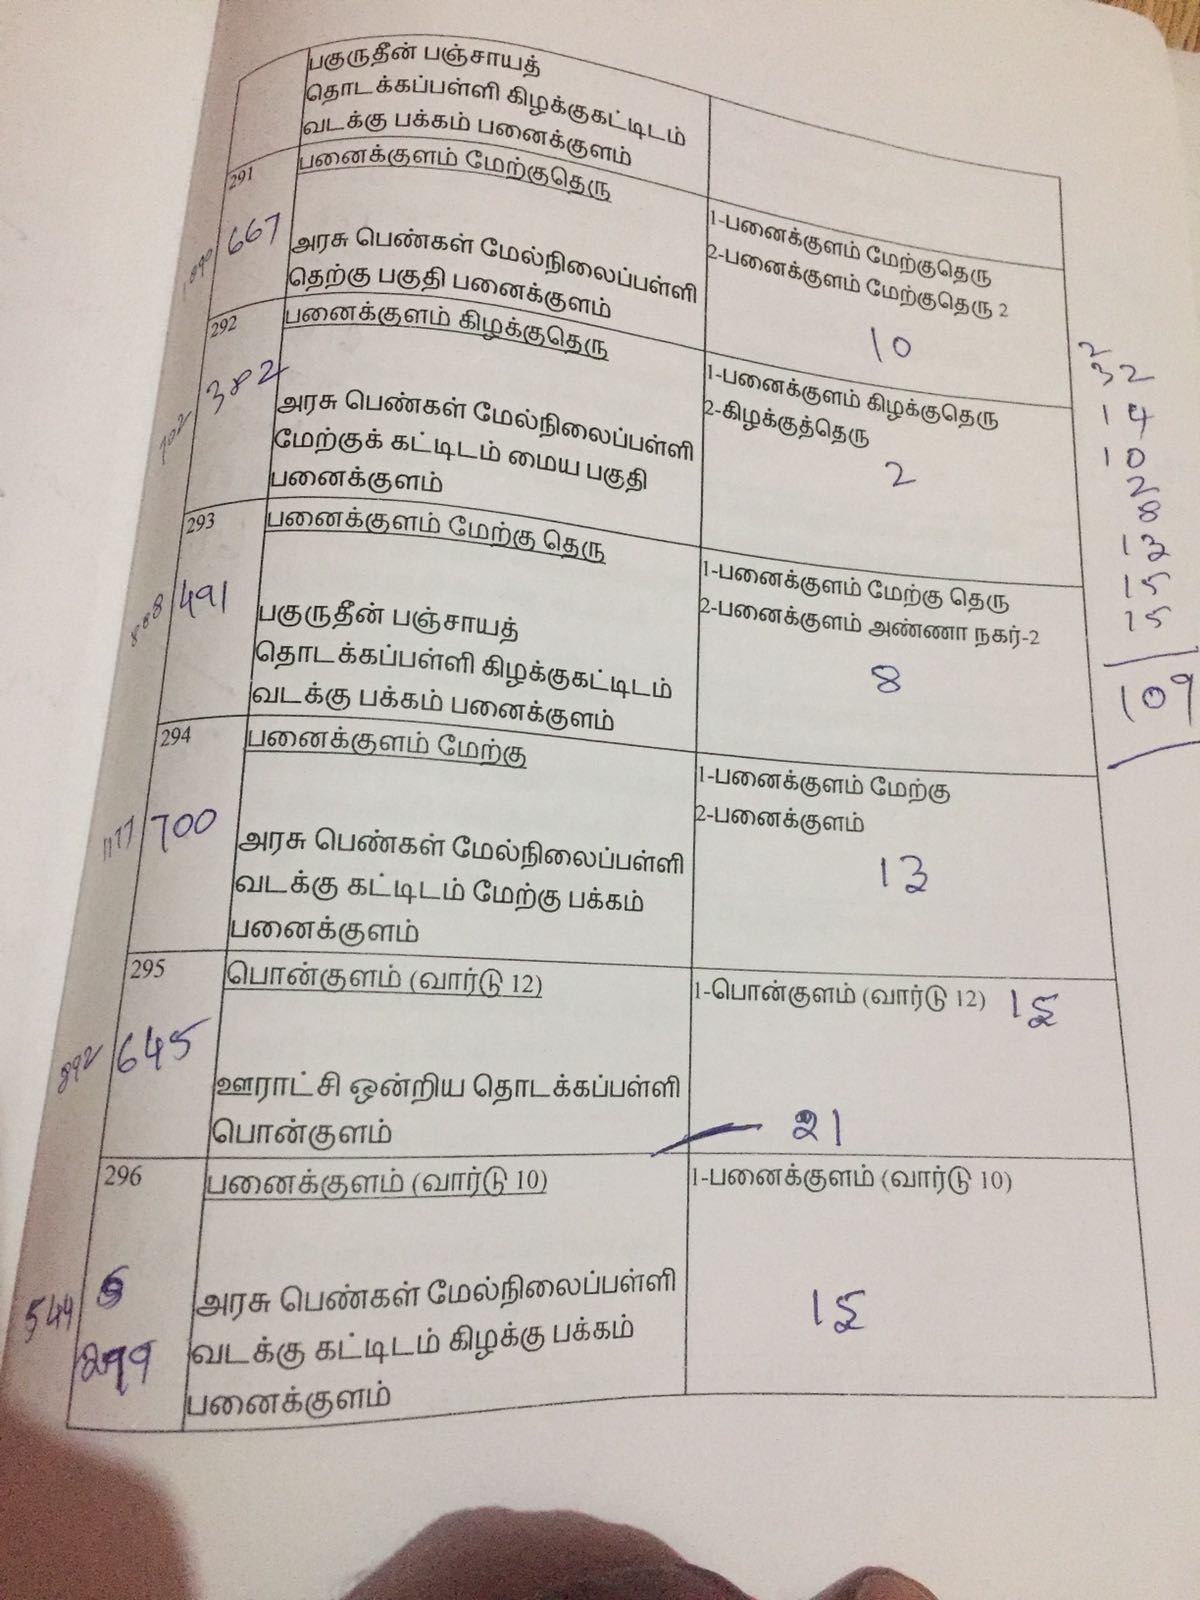 பகுருதீன் பஞ்சாயத்
தொடக்கப்பள்ளி கிழக்குகட்டிடம்
வடக்கு பக்கம் பனைக்குளம்
291
பனைக்குளம் மேற்குதெரு
1890 667
அரசு பெண்கள் மேல்நிலைப்பள்ளி
தெற்கு பகுதி பனைக்குளம்
1-பனைக்குளம் மேற்குதெரு
2-பனைக்குளம் மேற்குதெரு 2
10
292
பனைக்குளம் கிழக்குதெரு
702 382
அரசு பெண்கள் மேல்நிலைப்பள்ளி
மேற்குக் கட்டிடம் மைய பகுதி
பனைக்குளம்
1-பனைக்குளம் கிழக்குதெரு
2-கிழக்குத்தெரு
2
293
பனைக்குளம் மேற்கு தெரு
888 491
பகுருதீன் பஞ்சாயத்
தொடக்கப்பள்ளி கிழக்குகட்டிடம்
வடக்கு பக்கம் பனைக்குளம்
1-பனைக்குளம் மேற்கு தெரு
2-பனைக்குளம் அண்ணா நகர்-2
8
294
பனைக்குளம் மேற்கு
1177 700
அரசு பெண்கள் மேல்நிலைப்பள்ளி
வடக்கு கட்டிடம் மேற்கு பக்கம்
பனைக்குளம்
1-பனைக்குளம் மேற்கு
2-பனைக்குளம்
13
295
பொன்குளம் (வார்டு 12)
892 645
ஊராட்சி ஒன்றிய தொடக்கப்பள்ளி
பொன்குளம்
1-பொன்குளம் (வார்டு 12) 15
21
296
பனைக்குளம் (வார்டு 10)
544
அரசு பெண்கள் மேல்நிலைப்பள்ளி
வடக்கு கட்டிடம் கிழக்கு பக்கம்
பனைக்குளம்
1-பனைக்குளம் (வார்டு 10)
15
2
32
14
10
2
8
13
15
15
109